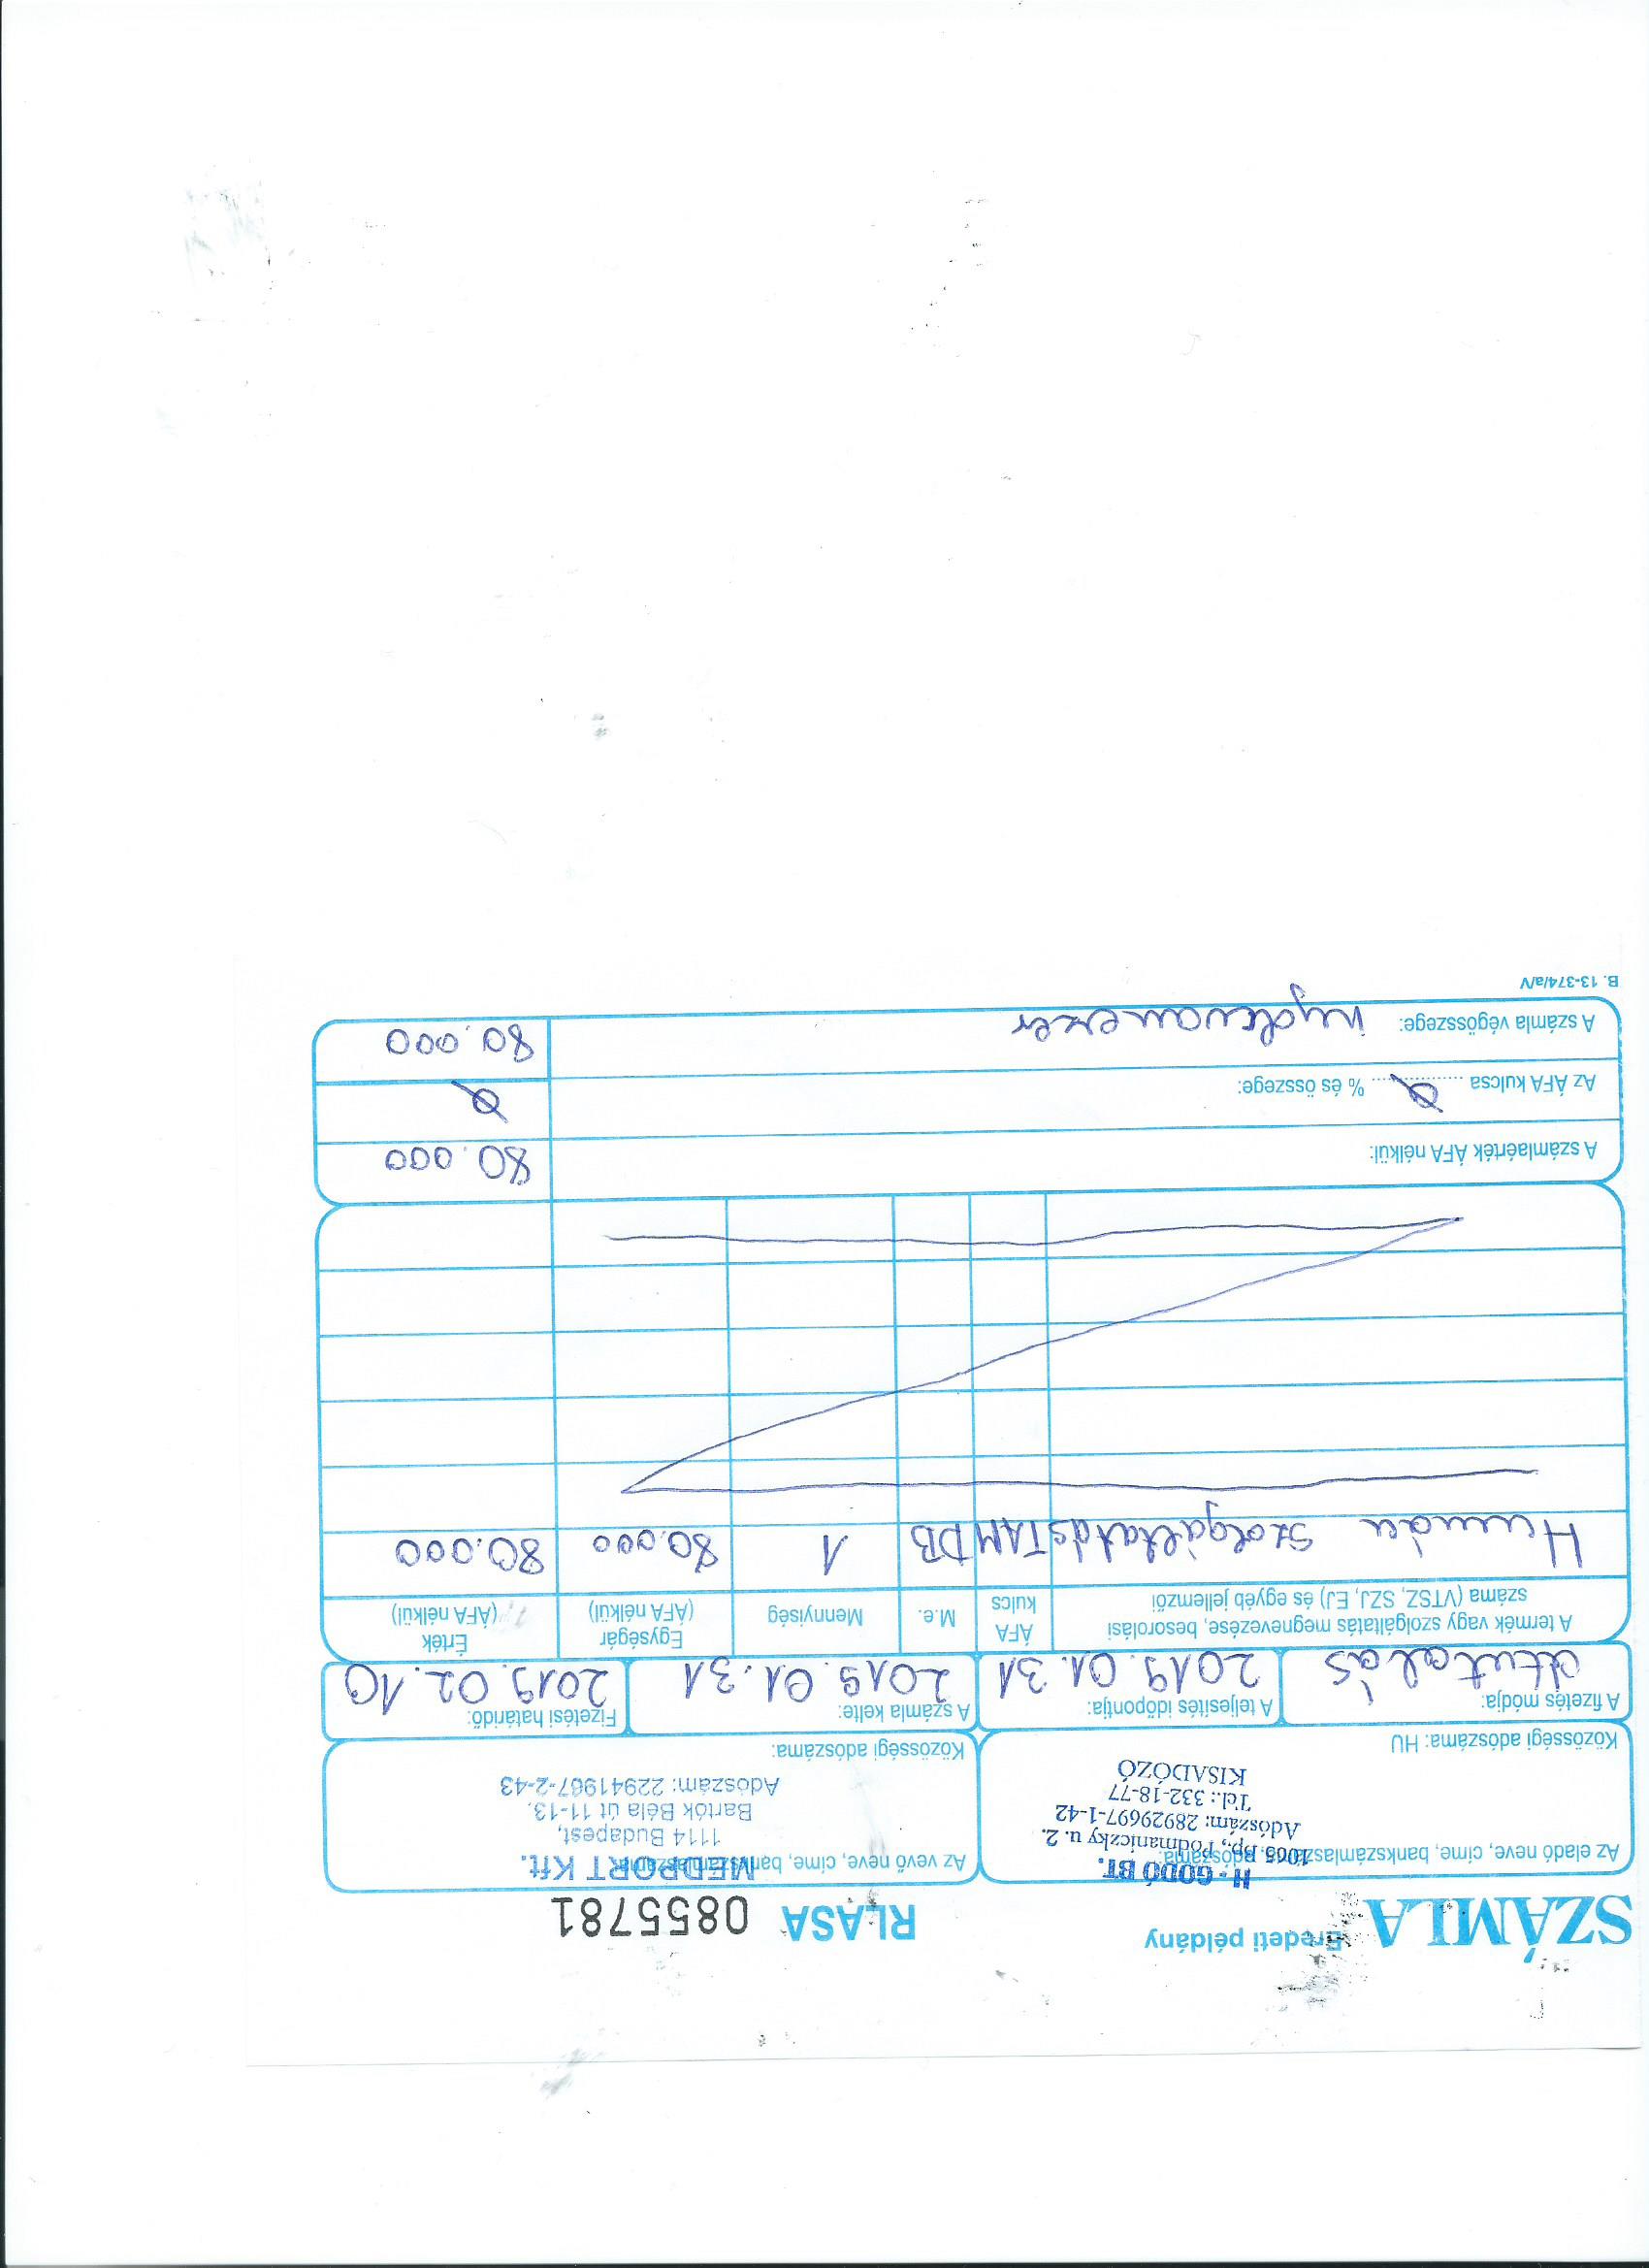 SZÁMLA Eredeti példány RLASA 0855781
Az eladó neve, címe, bankszámlaszáma, adószáma:
H - GODÓ BT.
1065 Bp., Podmaniczky u. 2.
Adószám: 28929697-1-42
Tel.: 332-18-77
KISADÓZÓ
Közösségi adószáma: HU
Az vevő neve, címe, bankszámlaszáma:
MEDPORT Kft.
1114 Budapest,
Bartók Béla út 11-13.
Adószám: 22941967-2-43
Közösségi adószáma:
A fizetés módja: A teljesítés időpontja: A számla kelte: Fizetési határidő:
átutalás 2019.01.31 2019.01.31 2019.02.10
A termék vagy szolgáltatás megnevezése, besorolási száma (VTSZ, SZJ, EJ) és egyéb jellemzői
ÁFA kulcs
M.e.
Mennyiség
Egységár (ÁFA nélkül)
Érték (ÁFA nélkül)
Humán szolgáltatás TAM DB 1 80.000 80.000
A számlaérték ÁFA nélkül: 80.000
Az ÁFA kulcsa ............ 0 ...... % és összege: 0
A számla végösszege: nyolcvanezer 80.000
B. 13-374/a/V